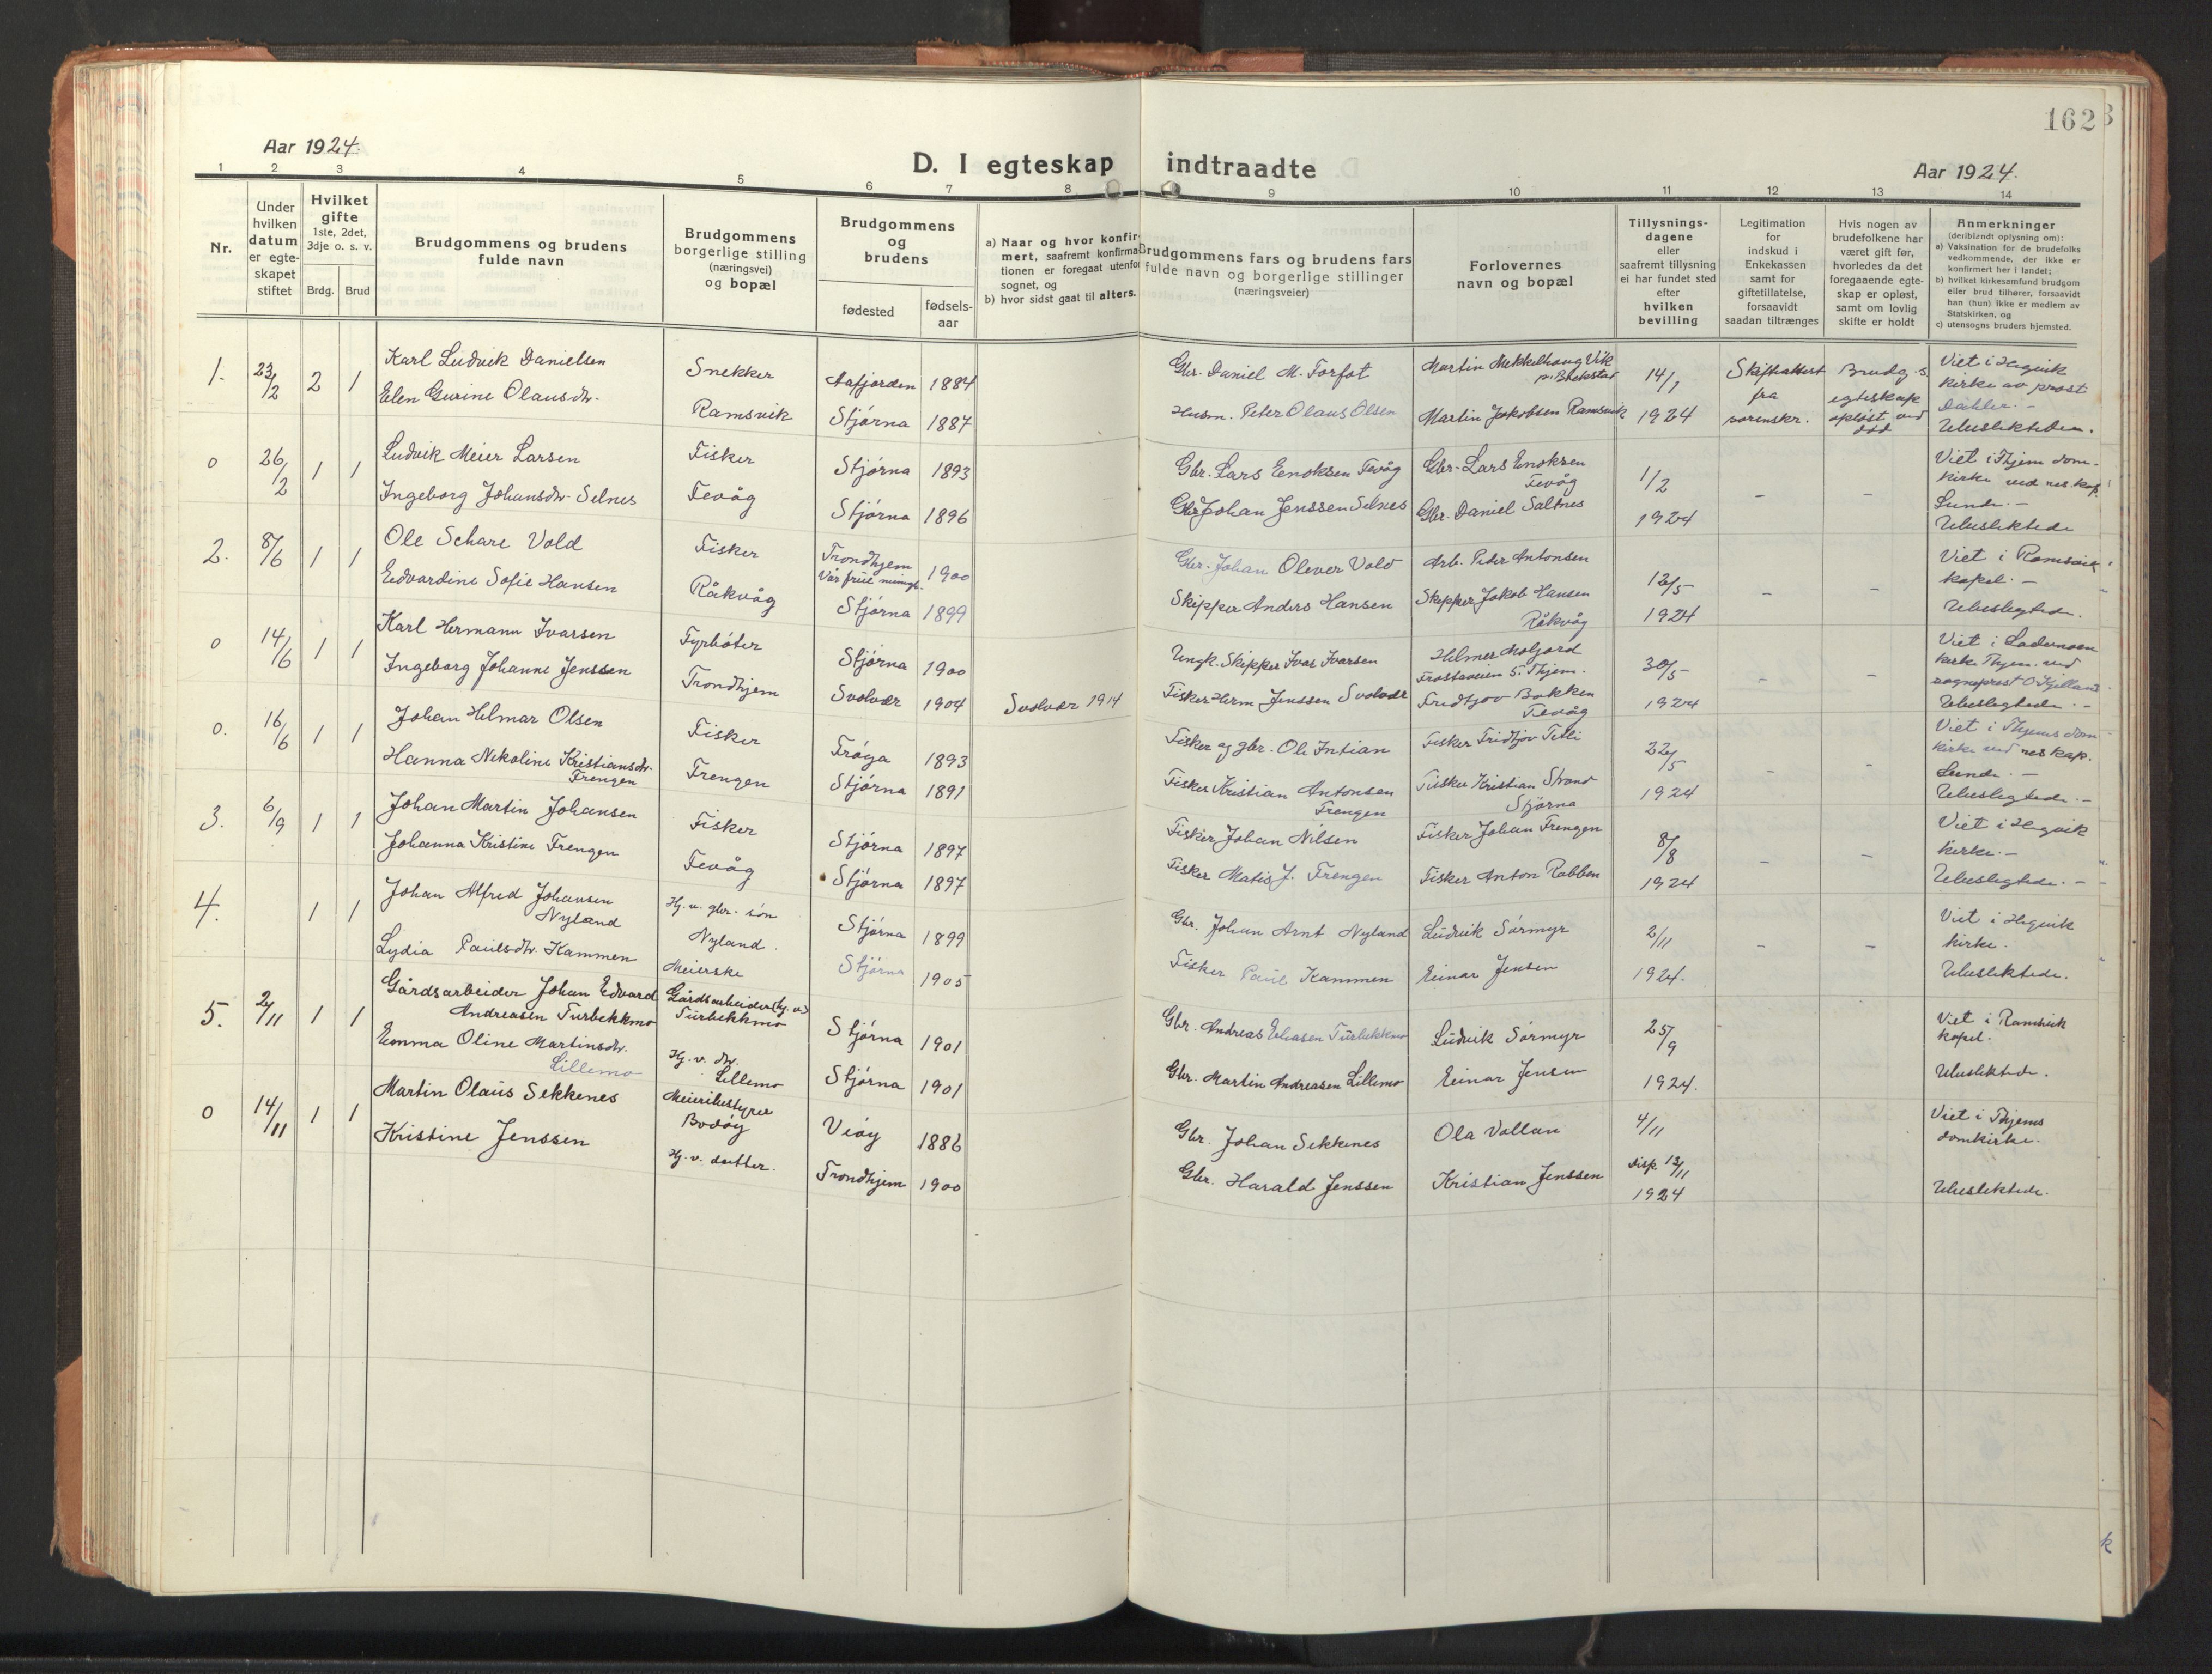 1623
Aar 1924.
D. I egteskap indtraadte
Aar 1924.
1 2 3 4 5 6 7 8 9 10 11 12 13 14
Nr.
Under hvilken datum er egteskapet stiftet
Hvilket gifte 1ste, 2det, 3dje o. s. v.
Brdg. Brud
Brudgommens og brudens fulde navn
Brudgommens borgerlige stilling (næringsvei) og bopæl
Brudgommens og brudens
fødested
fødsels-aar
a) Naar og hvor konfirmert, saafremt konfirmationen er foregaat utenfor sognet, og
b) hvor sidst gaat til alters.
Brudgommens fars og brudens fars fulde navn og borgerlige stillinger (næringsveier)
Forlovernes navn og bopæl
Tillysnings-dagene eller saafremt tillysning ei har fundet sted efter hvilken bevilling
Legitimation for indskud i Enkekassen samt for giftetillatelse, forsaavidt saadan tiltrænges
Hvis nogen av brudefolkene har været gift før, hvorledes da det foregaaende egteskap er opløst, samt om lovlig skifte er holdt
Anmerkninger
(deriblandt oplysning om):
a) Vaksination for de brudefolks vedkommende, der ikke er konfirmert her i landet;
b) hvilket kirkesamfund brudgom eller brud tilhører, forsaavidt han (hun) ikke er medlem av Statskirken, og
c) utensogns bruders hjemsted.
1. 23/2 2 1 Karl Ludvik Danielsen Snekker Aafjorden 1884 Gbr. Daniel M. Forfot Martin Mekkelhaug Vik p. Brekstad 14/1 Skifteattest Brudg.s Viet i Hegvik
Elen Gurine Olausdtr. Ramsvik Stjørna 1887 Husm. Peter Olaus Olsen Martin Jakobsen Ramsvik 1924 fra sorenskr. egteskap opløst ved død kirke av prost Dahler. - Ubeslektede.
0 26/2 1 1 Ludvik Meier Larsen Fisker Stjørna 1893 Gbr. Lars Enoksen Fevåg Gbr. Lars Enoksen Fevåg 1/2 - - Viet i Thjem dom-
Ingeborg Johansdtr. Selnes Fevåg Stjørna 1896 Gbr. Johan Jenssen Selnes Gbr. Daniel Saltnes 1924 kirke ved res. kap. Lunde. - Ubeslektede
2. 8/6 1 1 Ole Schare Vold Fisker Trondhjem Vår frue 1900 Gbr. Johan Olever Vold Arb. Peter Antonsen 12/5 - - Viet i Ramsvik
Edvardine Sofie Hansen Råkvåg Stjørna 1899 Skipper Anders Hansen Skipper Jakob Hansen Råkvåg 1924 kapel. - Ubeslegtede.
0 14/6 1 1 Karl Hermann Ivarsen Fyrbøter Stjørna 1900 Ungk. Skipper Ivar Ivarsen Helmer Moljord Frostaveien 5. Thjem. 30/5 - - Viet i Lademoen
Ingeborg Johanne Jenssen Trondhjem Svolvær 1904 Svolvær 1914 Fisker Herm Jenssen Svolvær Fridtjov Bakken Fevåg 1924 kirke Thjem. ved sogneprest O. Kjelland Ubeslegtede. -
0. 16/6 1 1 Johan Hilmar Olsen Fisker Frøya 1893 Fisker og gbr. Ole Intian Fisker Fridtjov Tetli 22/5 - - Viet i Thjems dom-
Hanna Nekoline Kristiansdtr. Frengen Frengen Stjørna 1891 Fisker Kristian Antonsen Frengen Fisker Kristian Strand Stjørna 1924 kirke ved res kap. Lunde. - Ubeslegtede. -
3. 6/9 1 1 Johan Martin Johansen Fisker Stjørna 1897 Fisker Johan Nilsen Fisker Johan Frengen 8/8 - - Viet i Hegvik
Johanna Kristine Frengen Fevåg Stjørna 1897 Fisker Matis J. Frengen Fisker Anton Rabben 1924 kirke. - Ubeslegtede. -
4. 1 1 Johan Alfred Johansen Nyland Hj. v. gbr. søn Nyland. Stjørna 1899 Gbr. Johan Arnt Nyland Ludvik Sørmyr 2/11 - - Viet i Hegvik
Lydia Paulsdtr. Kammen Meierske Stjørna 1905 Fisker Paul Kammen Einar Jensen 1924. kirke. Ubeslektede.
5. 2/11 1 1 Gårdsarbeider Johan Edvard Andreasen Turbekkmo Gårdsarbeider (hj. v.) Turbekkmo Stjørna 1901 Gbr. Andreas Eliasen Turbekkmo Ludvik Sørmyr 25/9 - Viet i Ramsvik
Emma Oline Martinsdtr. Lillemo Hj. v. dtr. Lillemo Stjørna 1901 Gbr. Martin Andreasen Lillemo Einar Jensen 1924. kapel. Ubeslektede.
0 14/11 1 1 Martin Olaus Sekkenes Meieribestyrer Bodøy Veøy 1886 Gbr. Johan Sekkenes Ola Vollan 4/11 Viet i Thjems
Kristine Jenssen Hj. v. datter. Trondhjem 1900 Gbr. Harald Jenssen Kristian Jenssen Disp. 13/11 1924 domkirke. Ubeslektede.